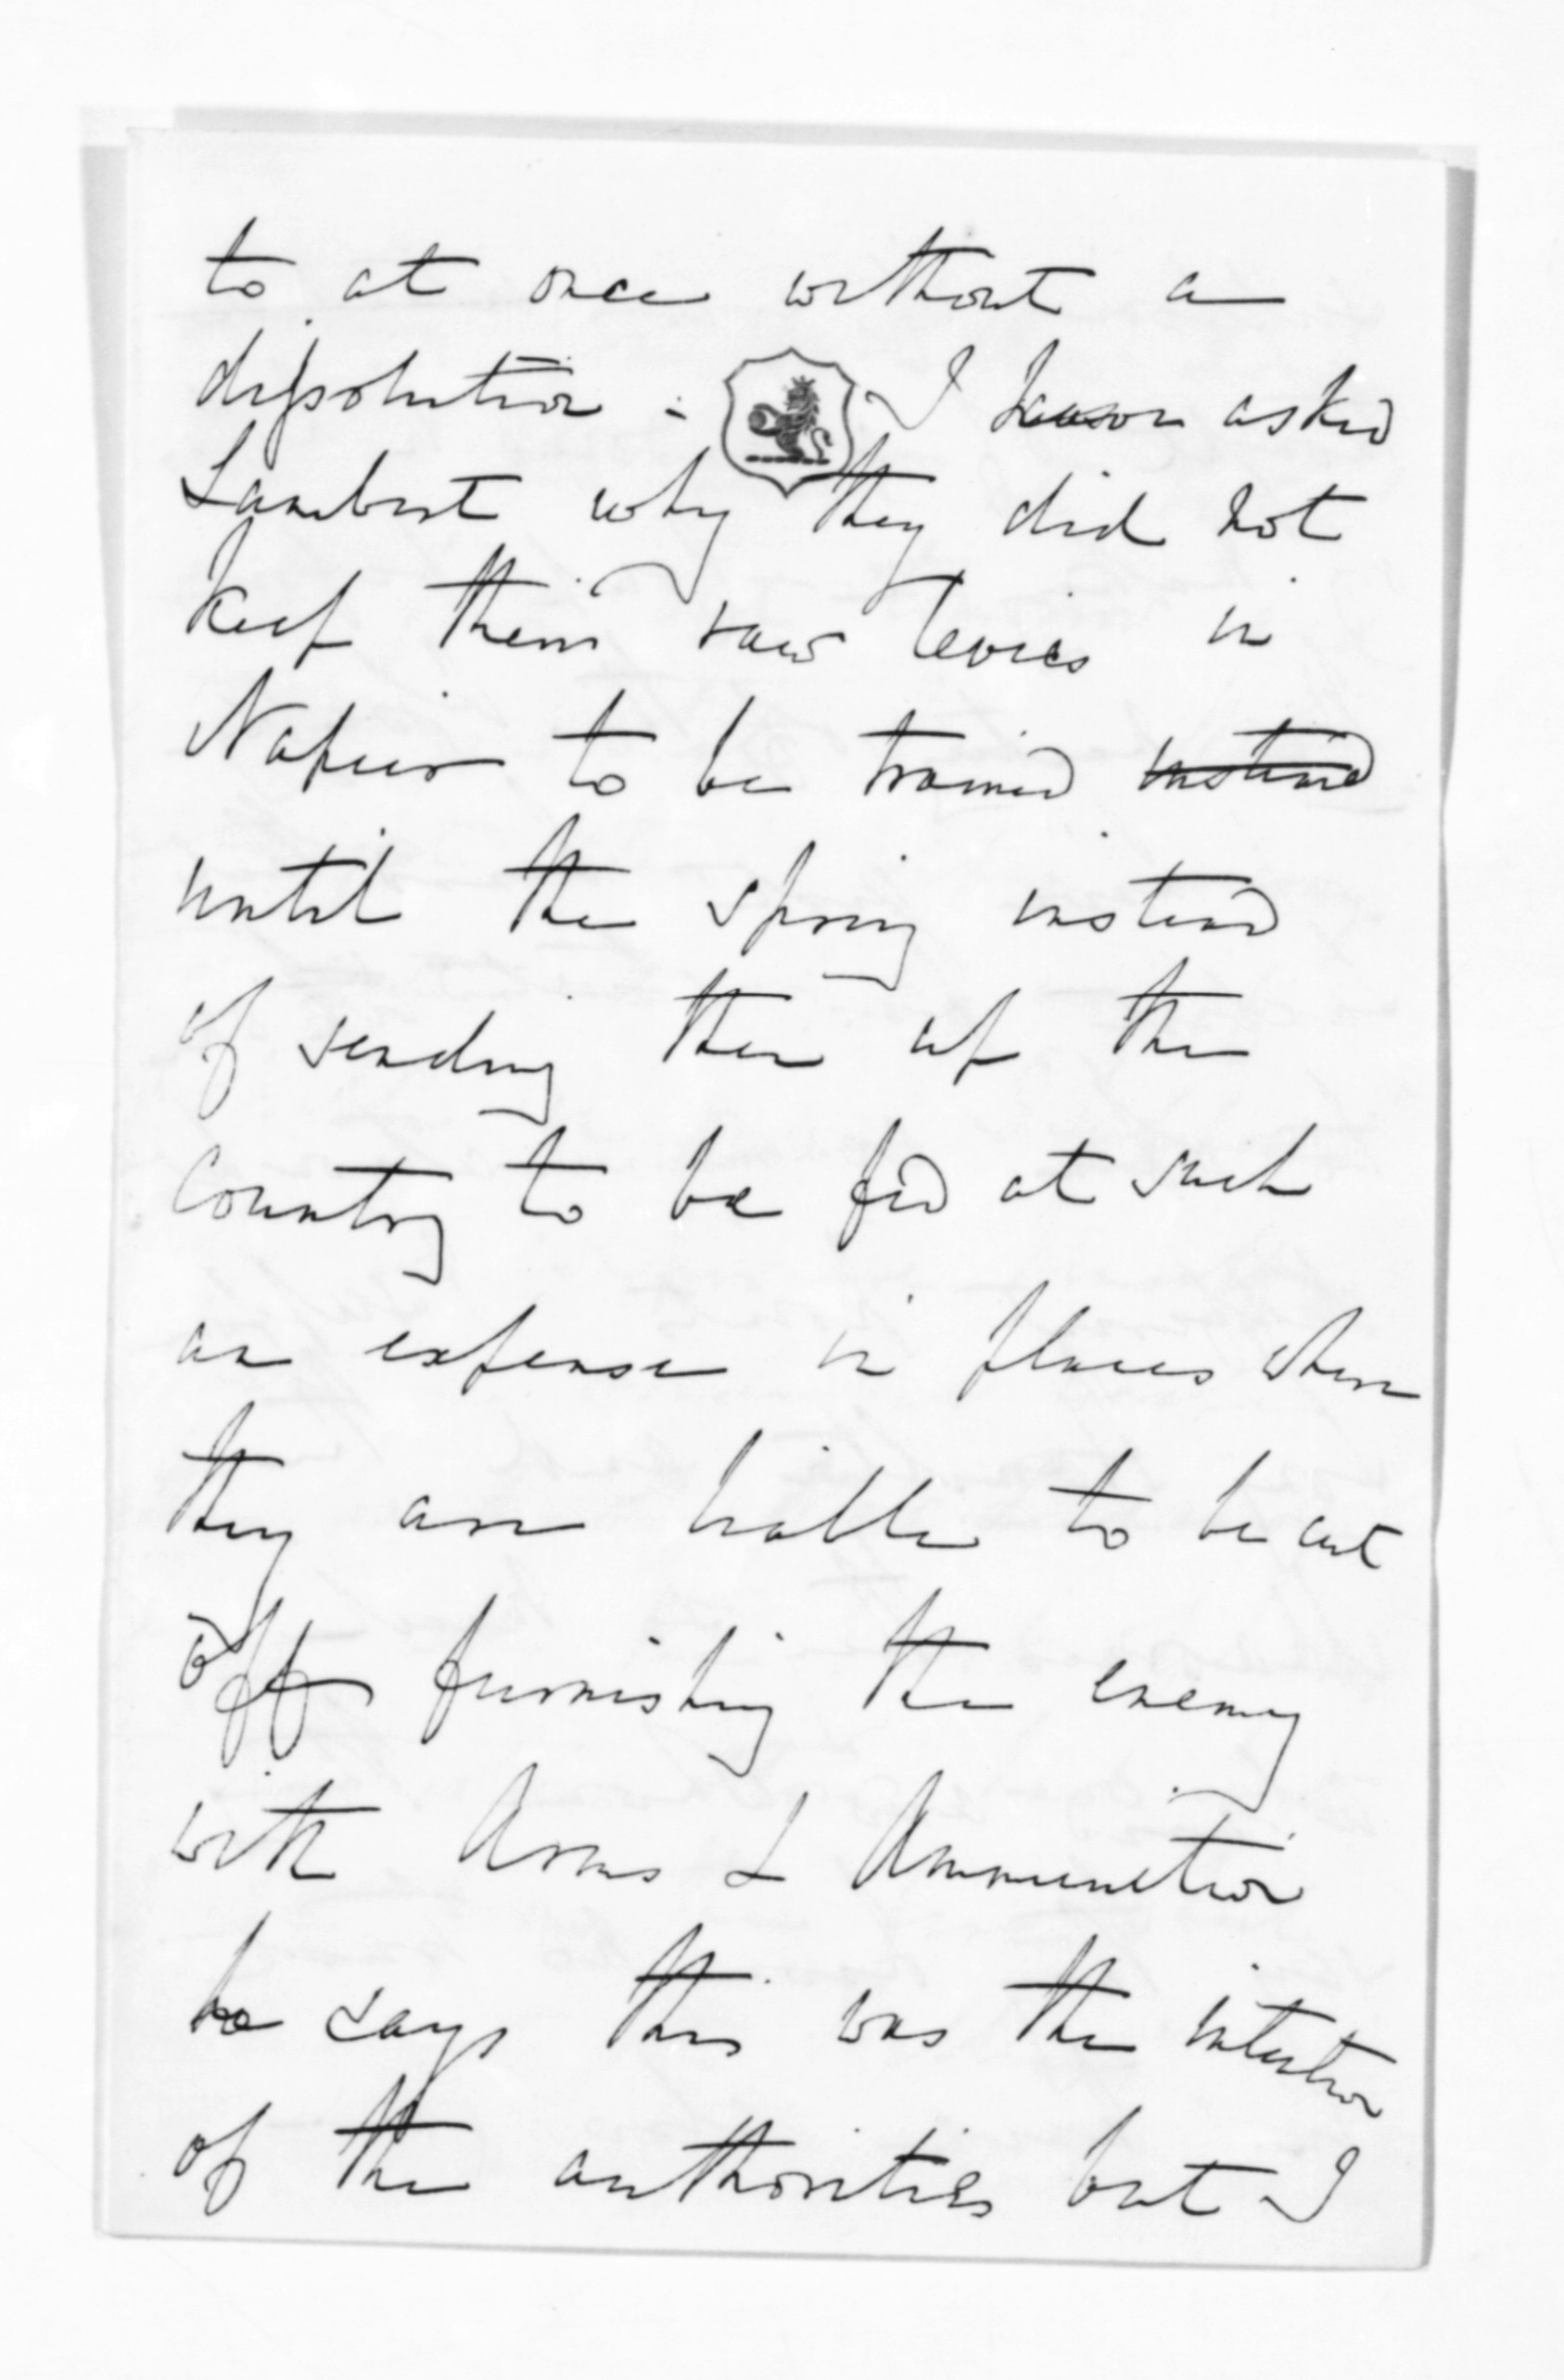 to at once without a
dissolution - I have asked
Lambert why they did not
keep their raw levies in
Napier to be trained instead
until the spring instead
of sending them up the
Country to be fed at such
an expense in places where
they are liable to be cut
off furnishing the enemy
with Arms & Ammunition
he says this was the intention
of the authorities but I